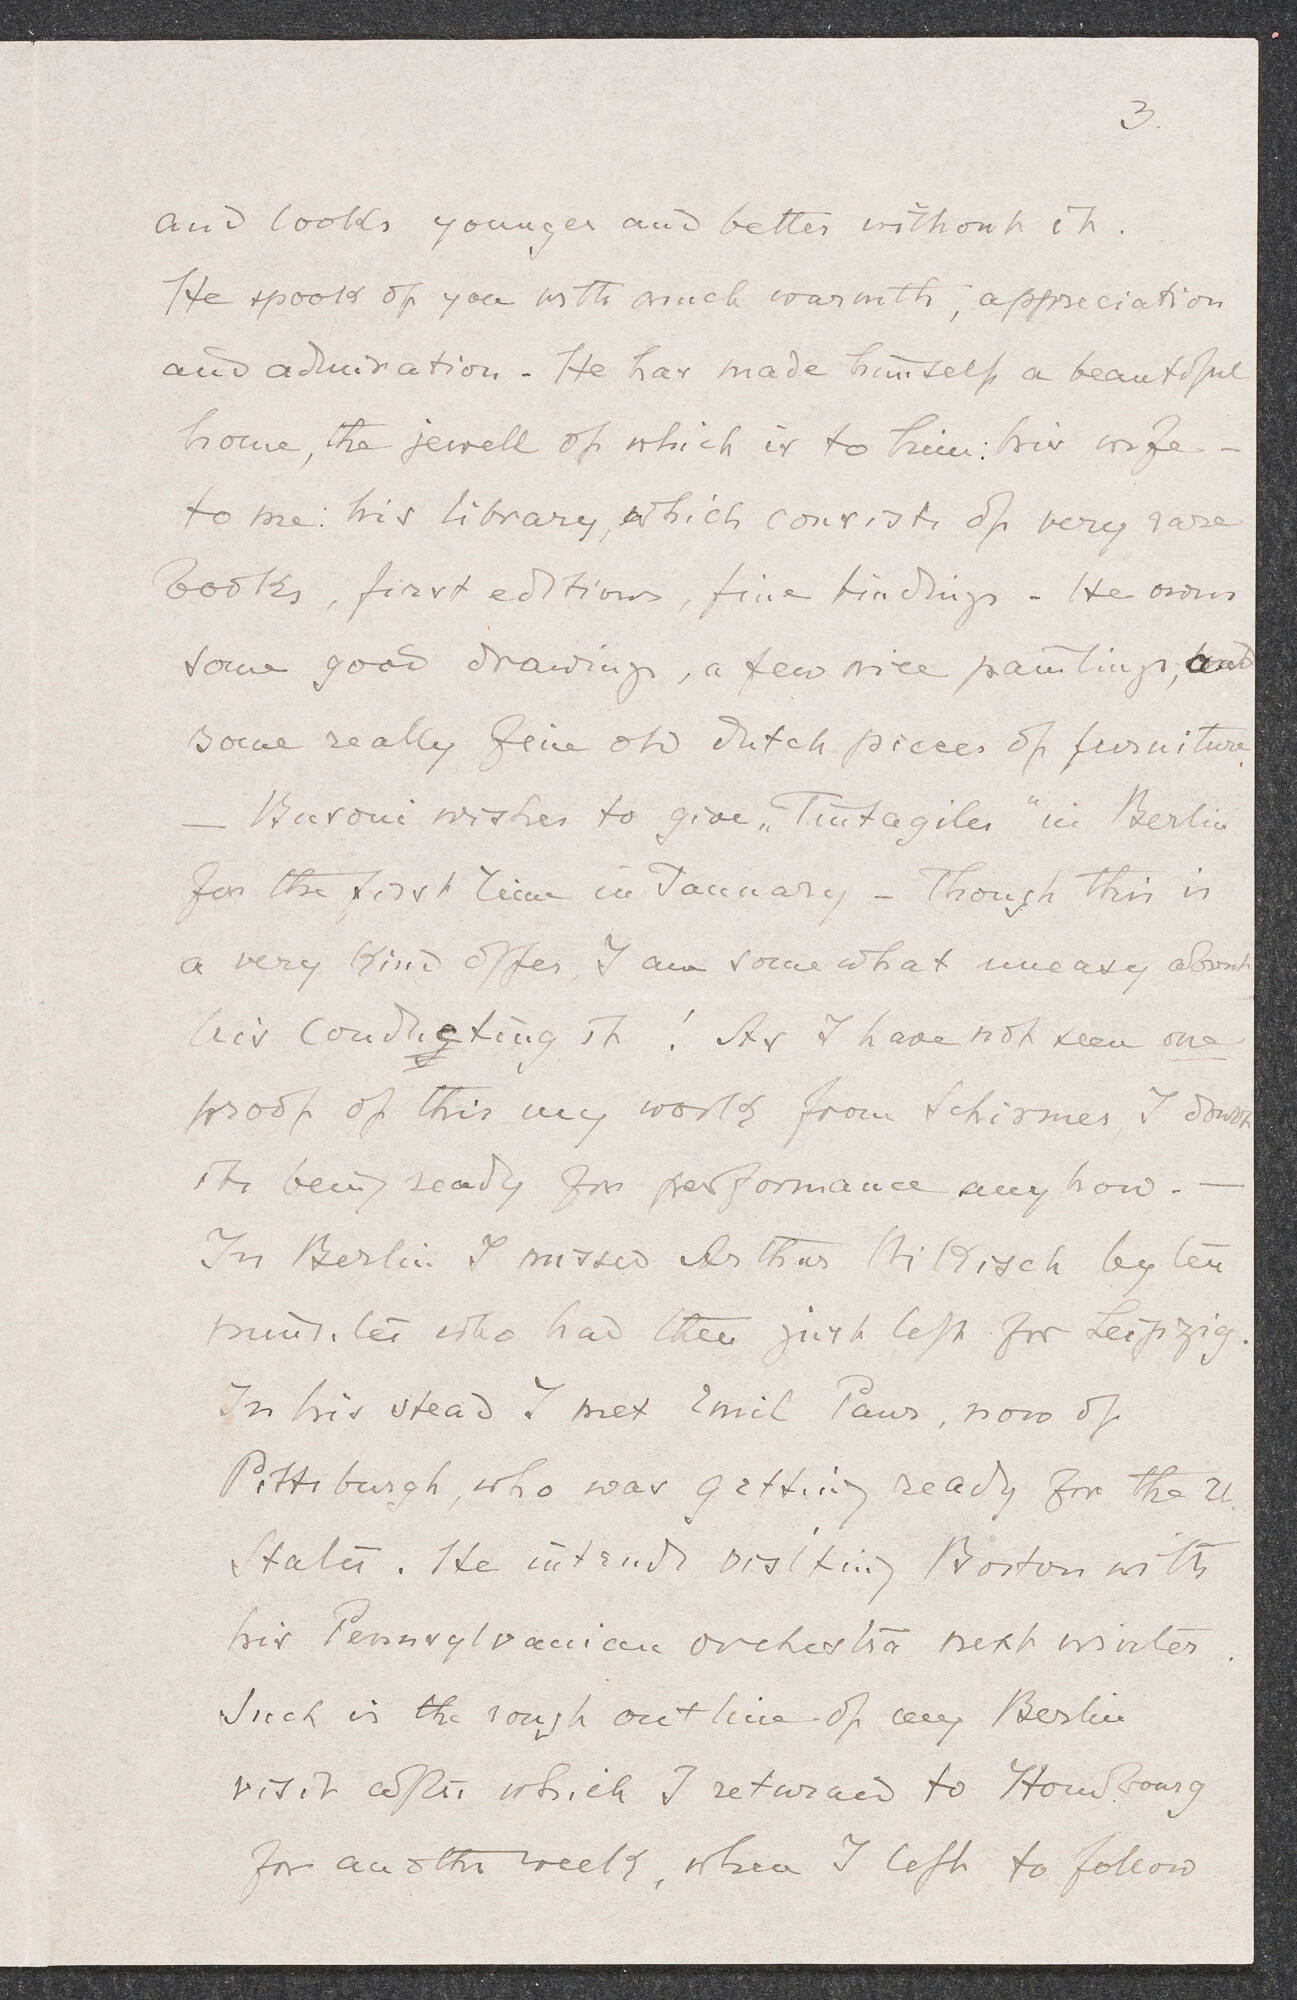 3.
and looks younger and better without it.
He spook of you with much warmth, appreciation
and admiration - He has made himself a beautiful
home, the jewell of which is to him: his wife -
to me: his library, which consists of very rare
books, first editions, fine bindings - He owns
some good drawings, a few nice paintings, and
some really fine old dutch pieces of furniture.
— Busoni wishes to give „Tintagiles“ in Berlin
for the first time in January - Though this is
a very kind offer, I am somewhat uneasy about
his conducting it! As I have not seen one
proof of this my work from Schirmer, I doubt
its being ready for performance anyhow. —
In Berlin I missed Arthur Nikisch by ten
minutes who had then just left for Leipzig.
In his stead I met Emil Paur, now of
Pittsburgh, who was getting ready for the U.
States. He intends visiting Boston with
his Pennsylvanian orchestra next winter.
Such is the rough outline of my Berlin
visit after which I returned to Hombourg
for another week, when I left to follow